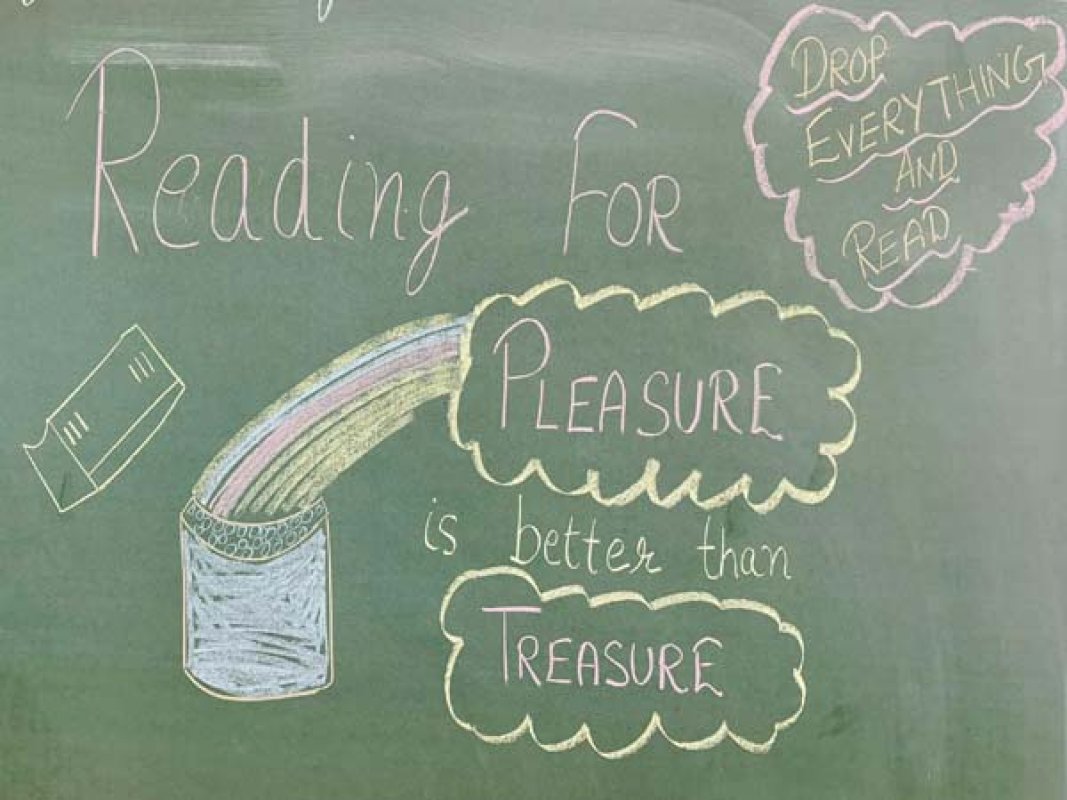 Reading FOR
DROP
EVERYTHING
AND
READ
PLEASURE
is better than
TREASURE